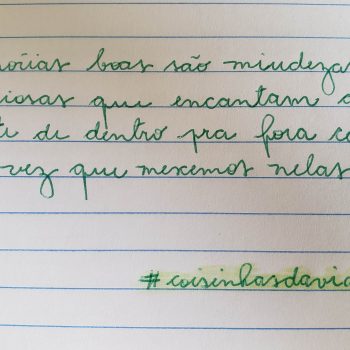 óias boas são miudezas
iosas que encantam a
te de dentro pra fora ca
vez que mexemos nelas
#coisinhasdavid